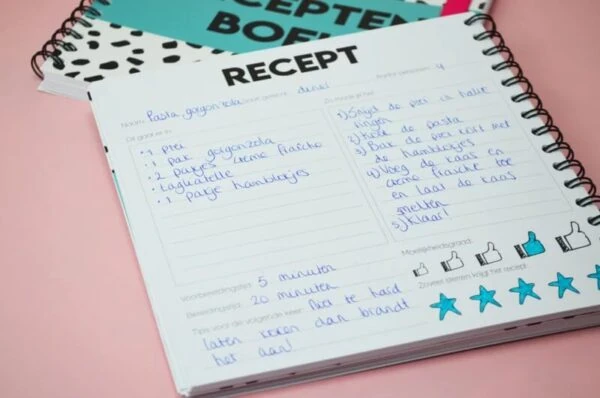 RECEPTEN
BOEK
RECEPT
Naam: Pasta gorgonzola Soort gerecht: diner Aantal personen: 4
Dit gaat er in:
• 1 prei
• 1 pak gorgonzola
• 2 pakjes creme fraiche
• tagliatelle
• 1 pakje hamblokjes
Zo maak je het:
1) Snijd de prei in halve
ringen
2) Kook de pasta
3) Bak de prei kort met
de hamblokjes
4) Voeg de kaas en
creme fraiche toe
en laat de kaas
smelten
5) Klaar!
Voorbereidingstijd: 5 minuten
Bereidingstijd: 20 minuten
Tips voor de volgende keer: Niet te hard
laten koken dan brandt
het aan!
Moeilijkheidsgraad:
Zoveel sterren krijgt het recept: